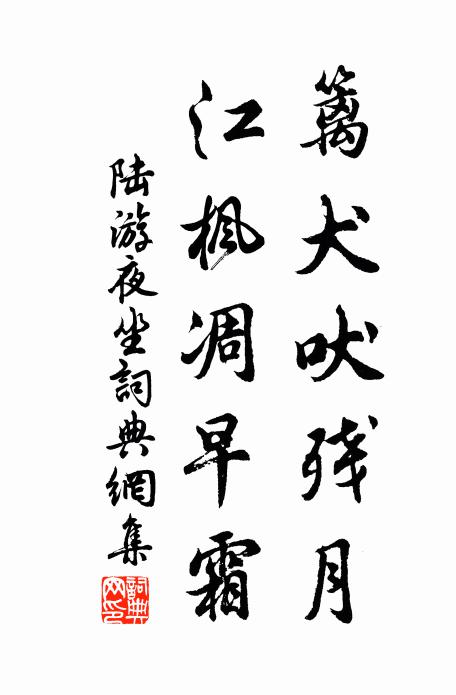 篱犬吠残月
江枫凋早霜
陆游夜坐詞典網集
詞典网印